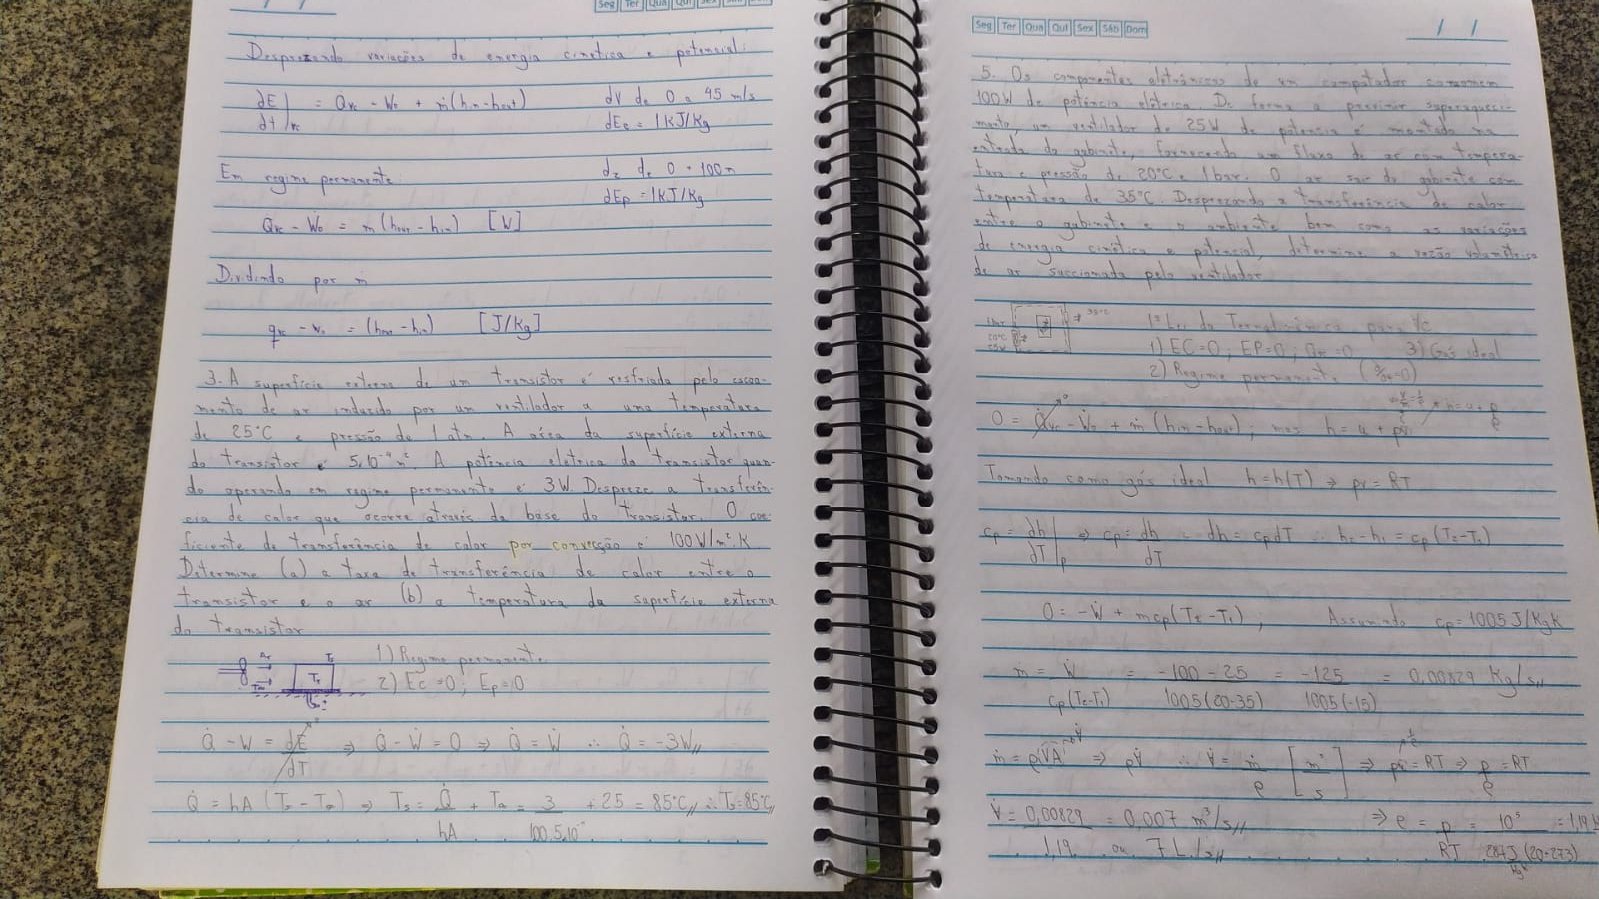 Seg Ter Qua Qui Sex Sáb Dom
Desprezando variações de energia cinética e potencial:
dE/dt|vc = Qvc - Wo + ṁ(hin-hout)
dV de 0 a 45 m/s
dEc = 1kJ/kg
Em regime permanente:
dz de 0 a 100m
dEp = 1kJ/kg
Qvc - Wo = ṁ(hout-hin) [W]
Dividindo por ṁ
qvc - wo = (hout-hin) [J/kg]
3. A superfície externa de um transistor é resfriada pelo escoa-
mento de ar induzido por um ventilador a uma temperatura
de 25°C e pressão de 1 atm. A área da superfície externa
do transistor é 5.10⁻⁴ m². A potência elétrica do transistor quan-
do operando em regime permanente é 3W. Despreze a transferên-
cia de calor que ocorre através da base do transistor. O coe-
ficiente de transferência de calor por convecção é 100W/m².K
Determine (a) a taxa de transferência de calor entre o
transistor e o ar (b) a temperatura da superfície externa
do transistor
Ar Ts
1) Regime permanente
2) Ec=0; Ep=0
Q̇ - W = dE/dT ⇒ Q̇ - Ẇ = 0 ⇒ Q̇ = Ẇ ∴ Q̇ = -3W//
Q̇ = hA (Ts - T∞) ⇒ Ts = Q̇/hA + T∞ = 3/100.5.10⁻⁴ + 25 = 85°C// ∴ Ts=85°C//
Seg Ter Qua Qui Sex Sáb Dom
/ /
5. Os componentes eletrônicos de um computador consomem
100W de potência elétrica. De forma a prevenir superaqueci-
mento, um ventilador de 25W de potência é montado na
entrada do gabinete, fornecendo um fluxo de ar com tempera-
tura e pressão de 20°C e 1bar. O ar sai do gabinete com
temperatura de 35°C. Desprezando a transferência de calor
entre o gabinete e o ambiente bem como as variações
de energia cinética e potencial, determine a vazão volumétrica
de ar succionada pelo ventilador
1bar 20°C 25W → 35°C
1ª Lei da Termodinâmica para VC
1) EC=0; EP=0; Qvc=0 3) Gás ideal
2) Regime permanente (d/dt=0)
0 = Q̇vc - Ẇo + ṁ (hin-hout); mas h = u + pv
h = u + p/ρ
Tomando como gás ideal h=h(T) ⇒ pv = RT
cp = dh/dT|p ⇒ cp = dh/dT ∴ dh = cpdT ∴ h2-h1 = cp(T2-T1)
0 = -Ẇ + ṁcp(T2-T1); Assumindo cp = 1005 J/kgK
ṁ = Ẇ/cp(T2-T1) = -100-25/1005(20-35) = -125/1005(-15) = 0,00829 kg/s//
ṁ = ρVA ⇒ ρV̇ ∴ V̇ = ṁ/ρ [m³/s] ⇒ pv = RT ⇒ p/ρ = RT
V̇ = 0,00829/1,19 = 0,007 m³/s// ou 7 L/s//
⇒ ρ = p/RT = 10⁵/287J/kgK (20-273) = 1,19